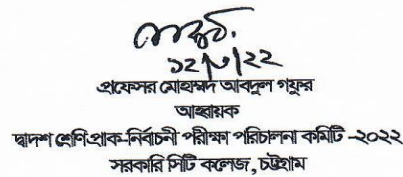 ১২/৬/২২
প্রফেসর মোহাম্মদ আবদুল গফুর
আহবায়ক
দ্বাদশ শ্রেণি প্রাক-নির্বাচনী পরীক্ষা পরিচালনা কমিটি -২০২২
সরকারি সিটি কলেজ, চট্টগ্রাম